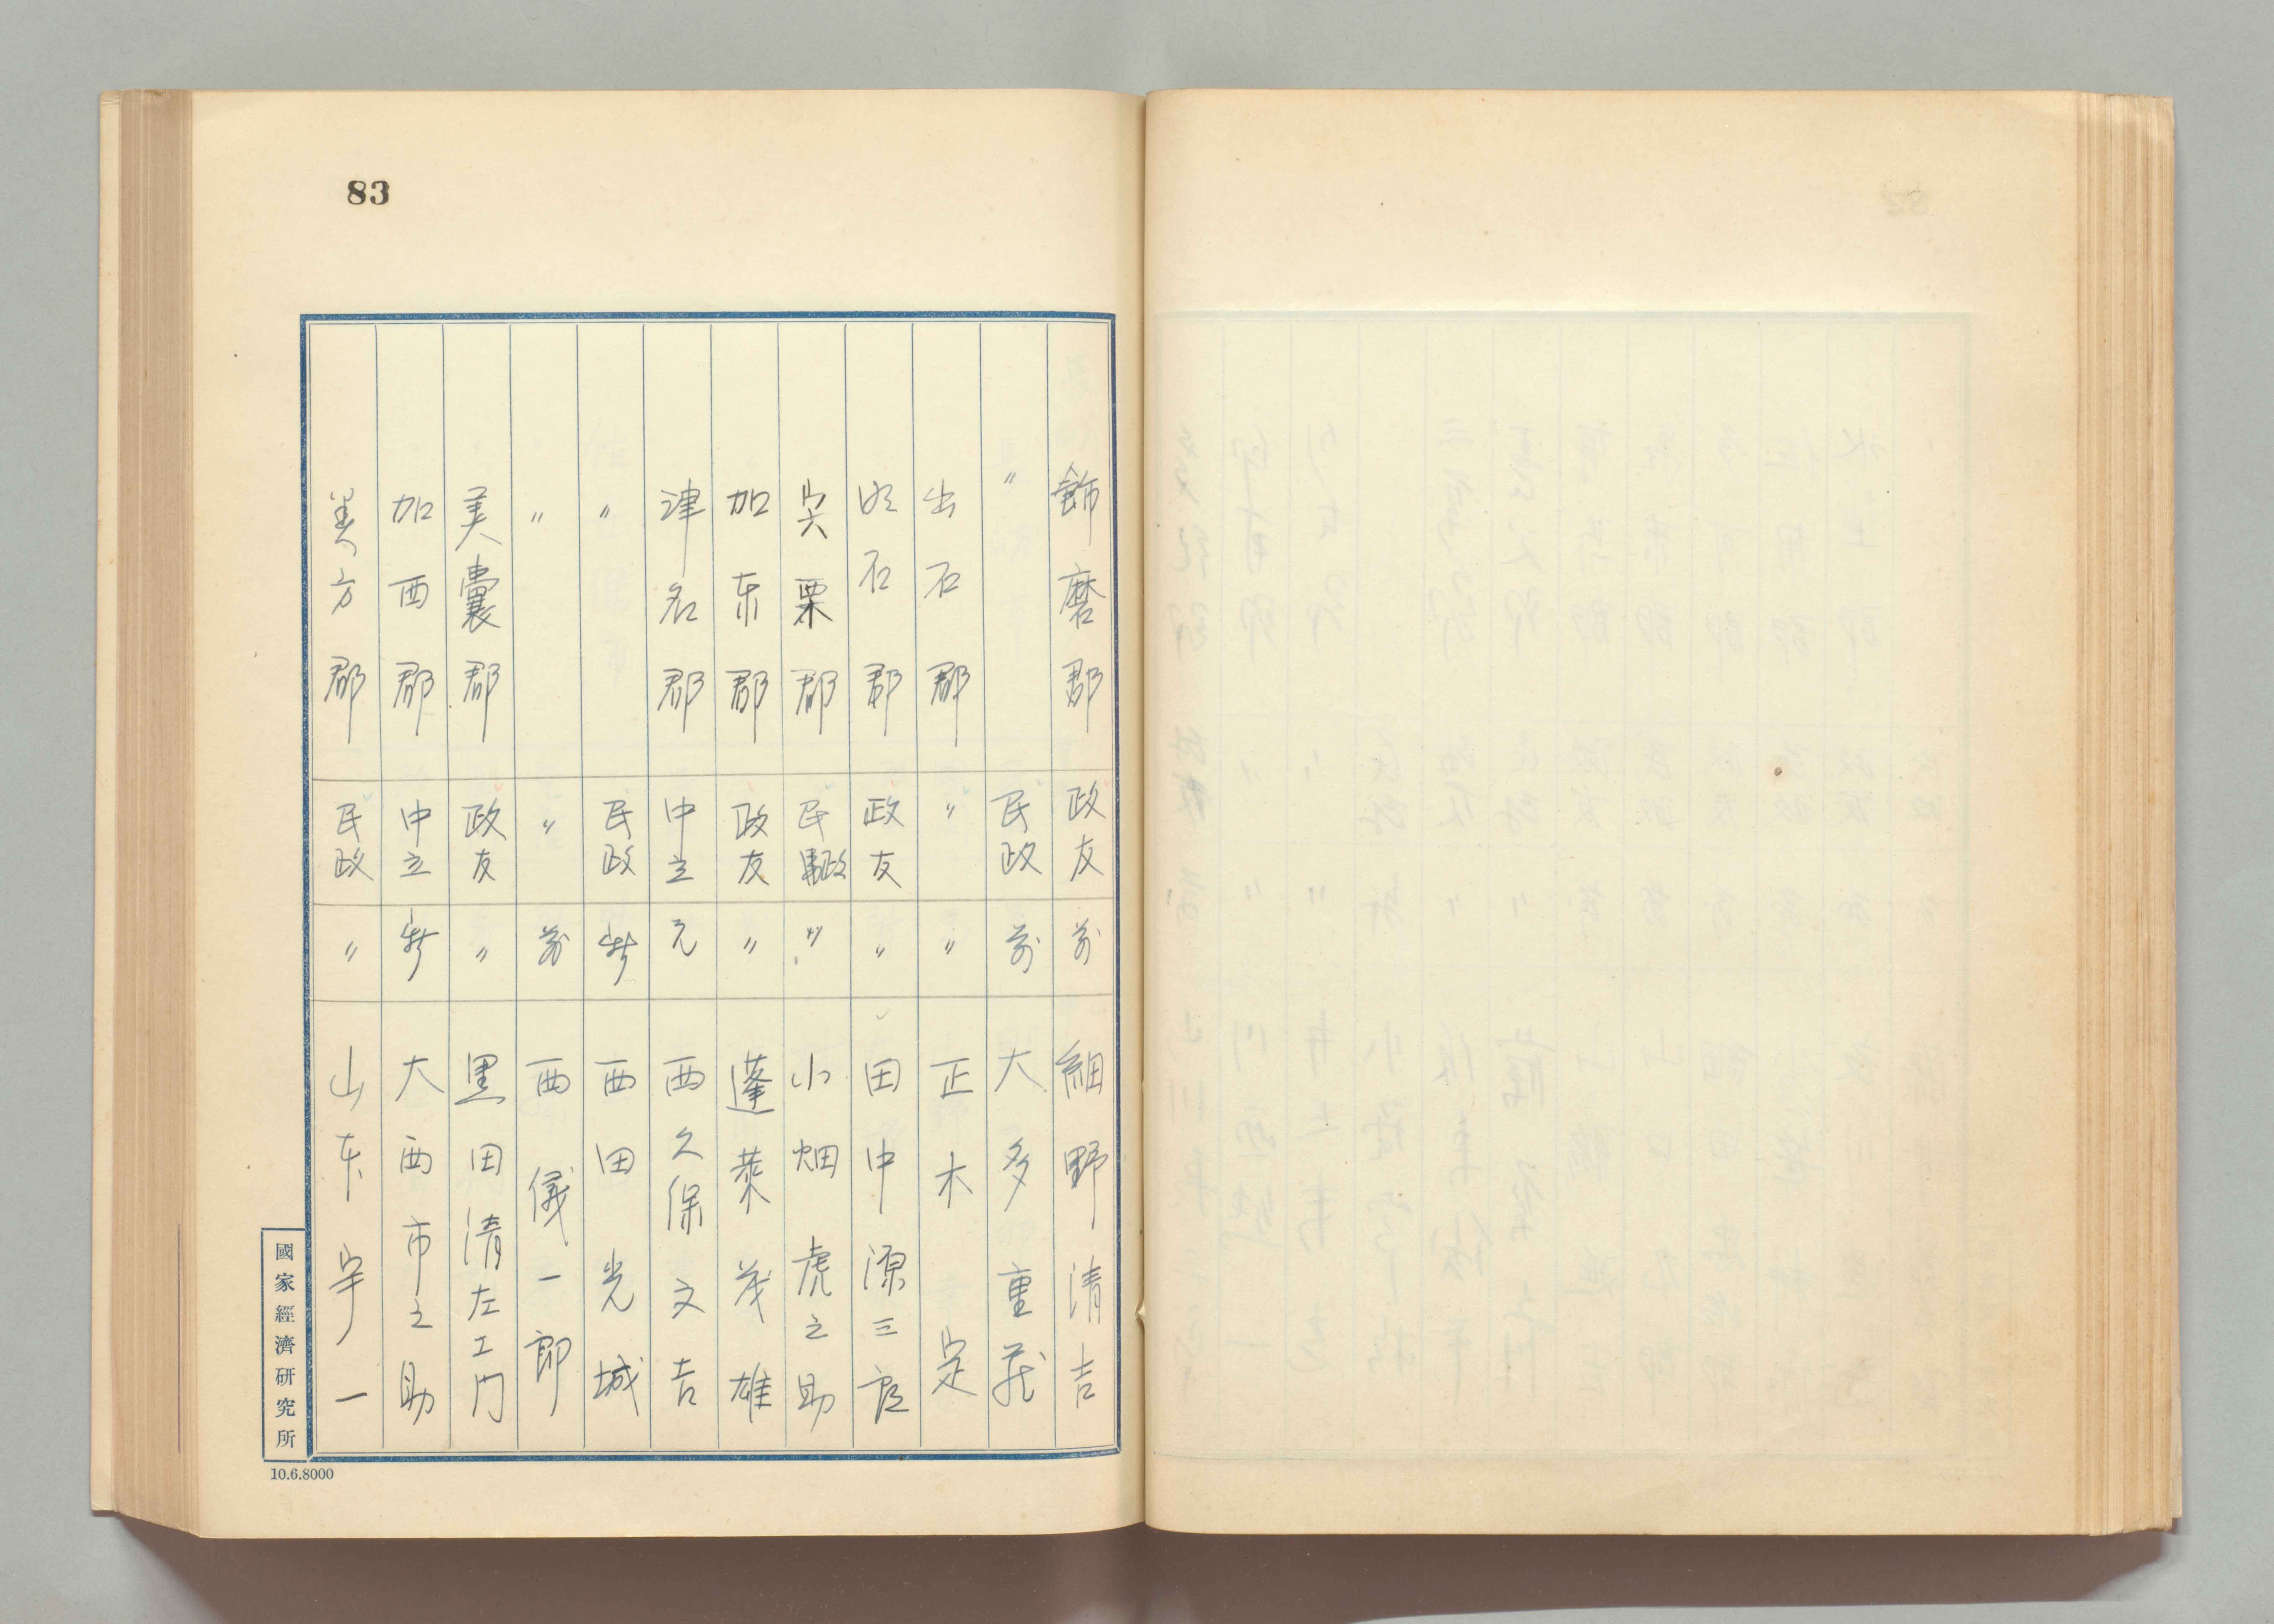 83
飾磨郡 政友 前 細野清吉
〃 民政 前 大多重蔵
出石郡 〃 〃 正木定
明石郡 政友 〃 田中源三郎
宍粟郡 民政 〃 小畑虎之助
加東郡 政友 〃 蓬萊茂雄
津名郡 中立 元 西久保文吉
〃 民政 新 西田光城
〃 〃 前 西儀一郎
美嚢郡 政友 〃 黒田清左エ門
加西郡 中立 新 大西市之助
美方郡 民政 〃 山本宇一
國家經濟研究所
10.6.8000